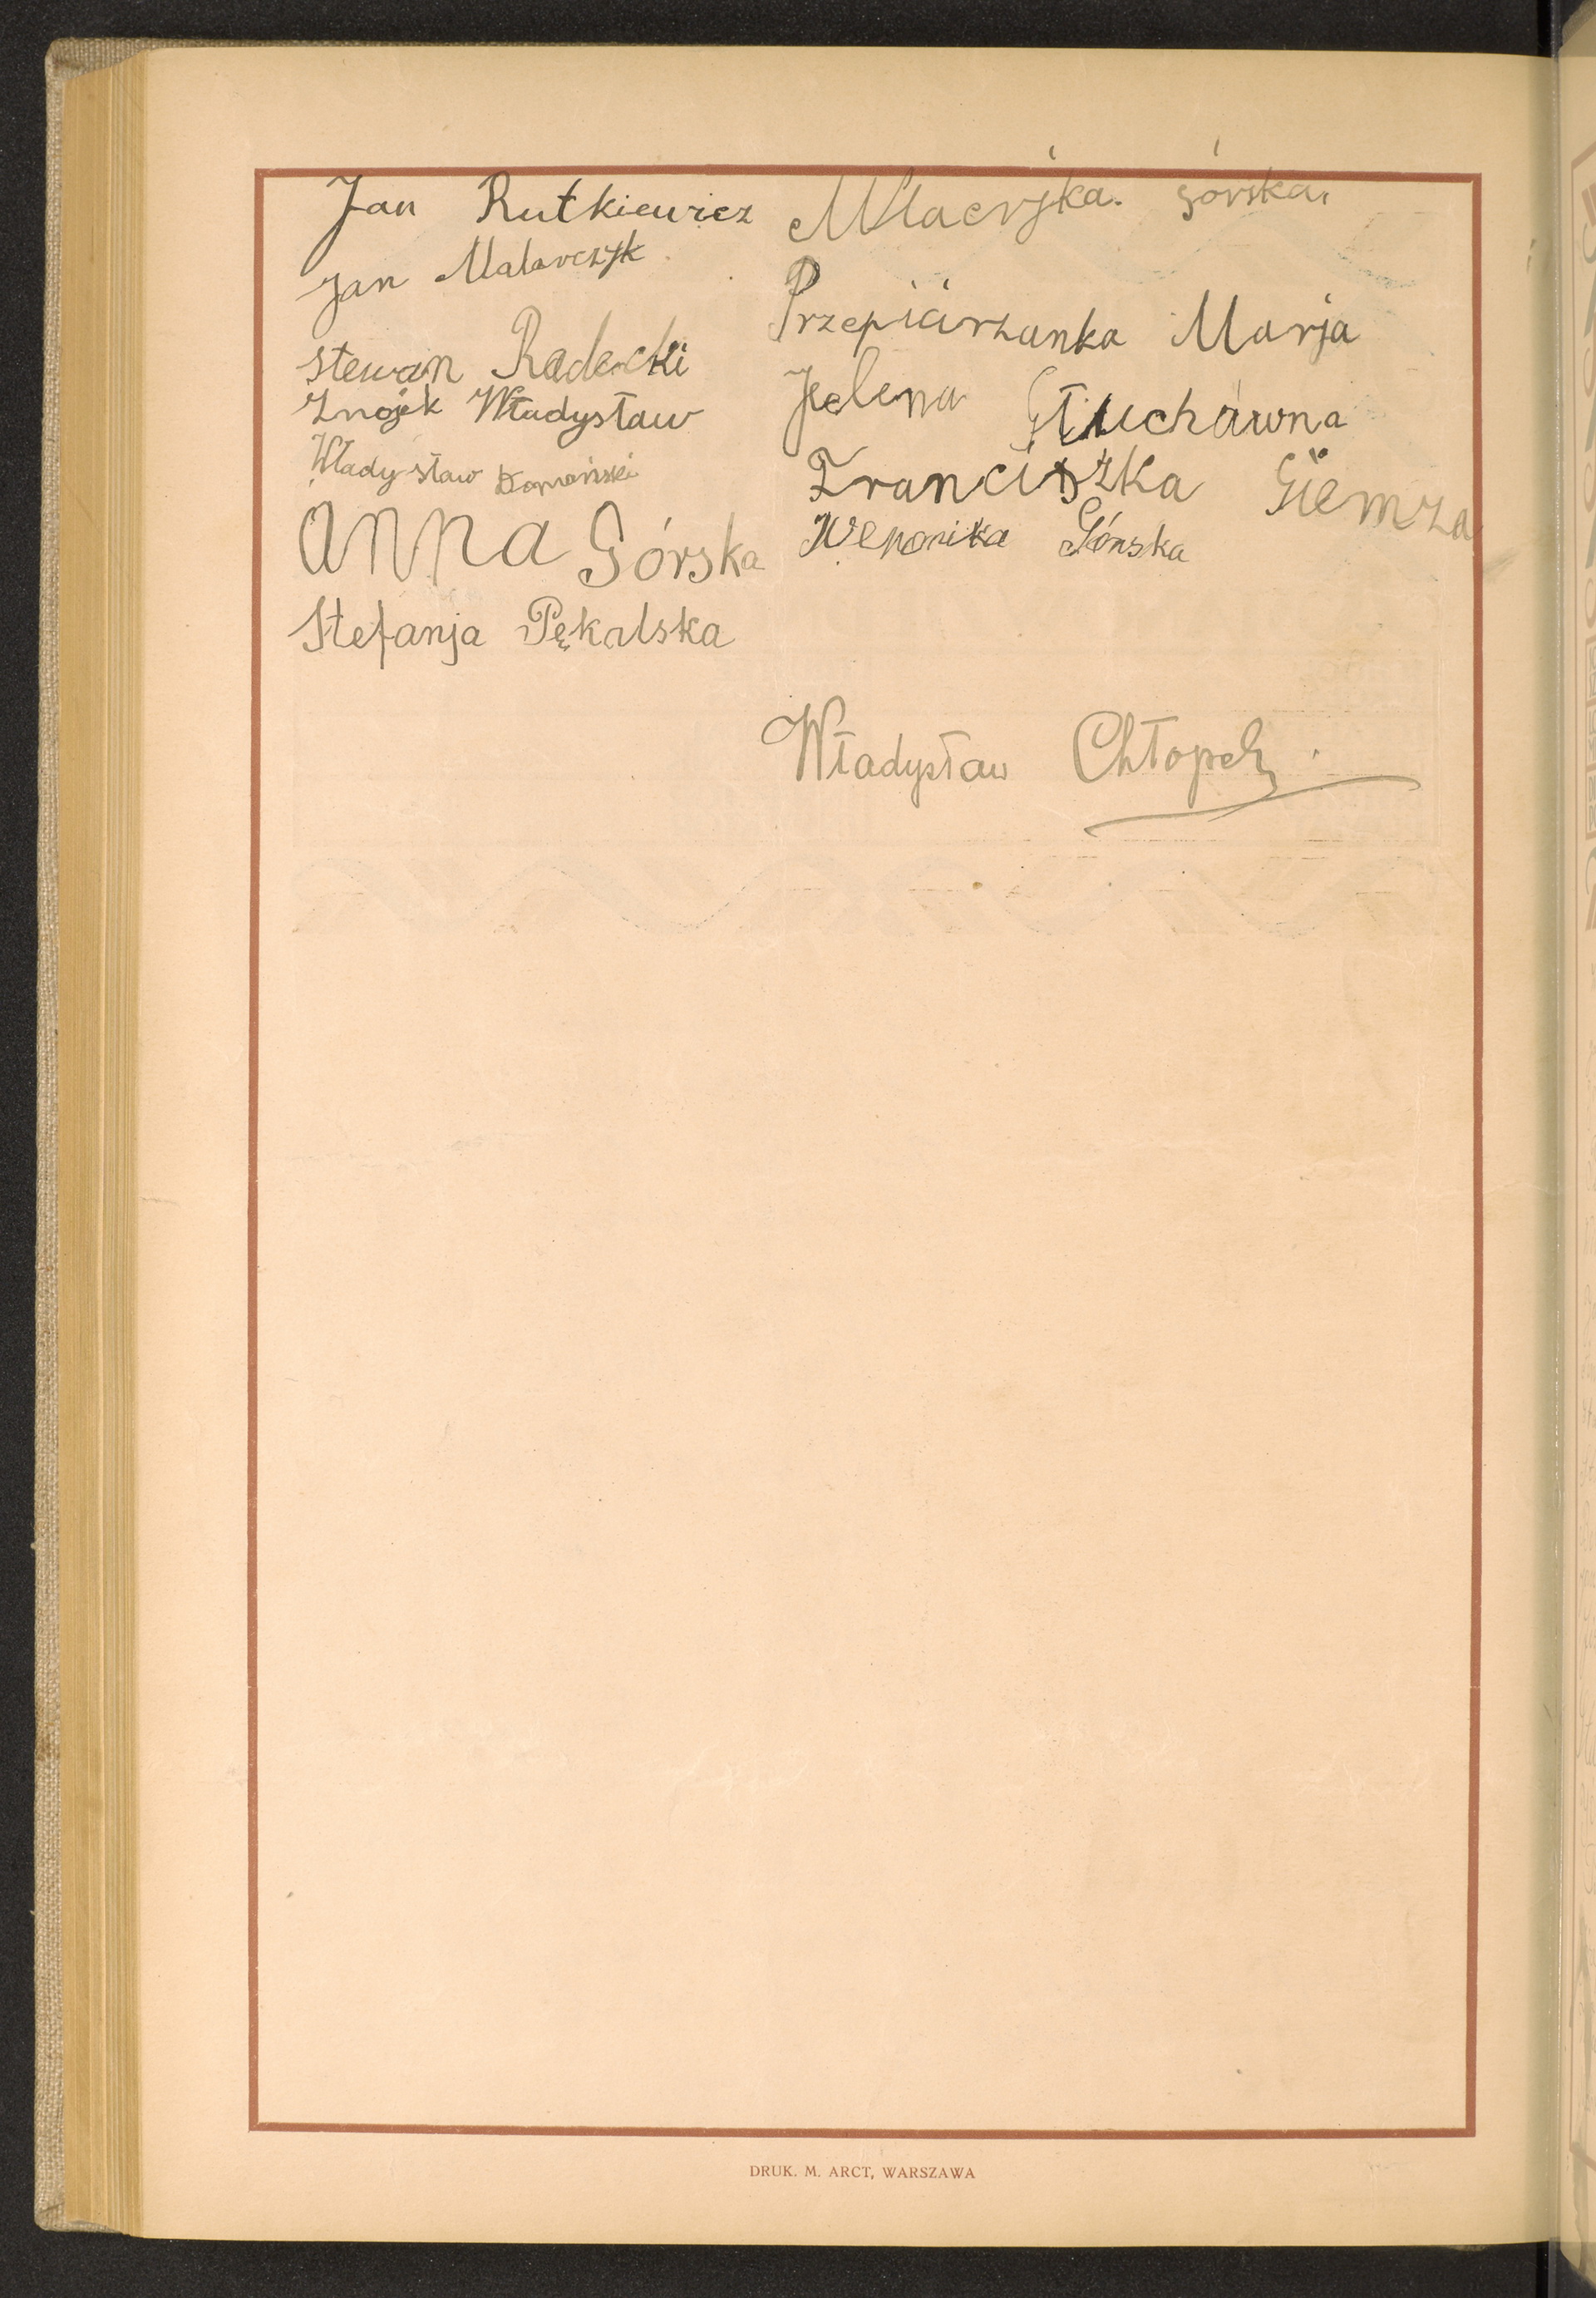 Jan Rutkiewicz
Jan Malarczyk
Stewan Radecki
Znojek Władysław
Władysław Domański
Anna Górska
Stefanja Pękalska
górska.
Przepiórzanka Marja
Helena Głuchówna
Franciszka Giemza
Weronika Górska
Władysław Chłopek
DRUK. M. ARCT, WARSZAWA